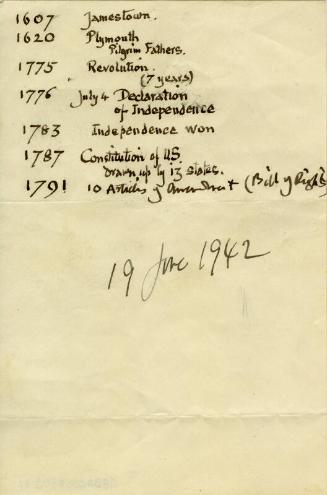 1607 Jamestown.
1620 Plymouth
Pilgrim Fathers.
1775 Revolution.
(7 years)
1776 July 4 Declaration
of Independence
1783 Independence won
1787 Constitution of U.S.
drawn up by 13 states.
1791 10 Articles of Amendment (Bill of Rights)
19 June 1942